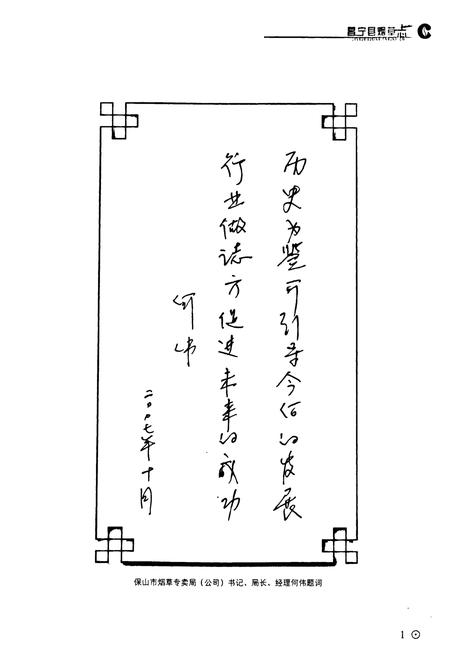 昌宁县烟草志
历史为鉴可引导今后的发展
行业做志方促进未来的成功
何伟
二〇〇七年十月
保山市烟草专卖局（公司）书记、局长、经理何伟题词
1